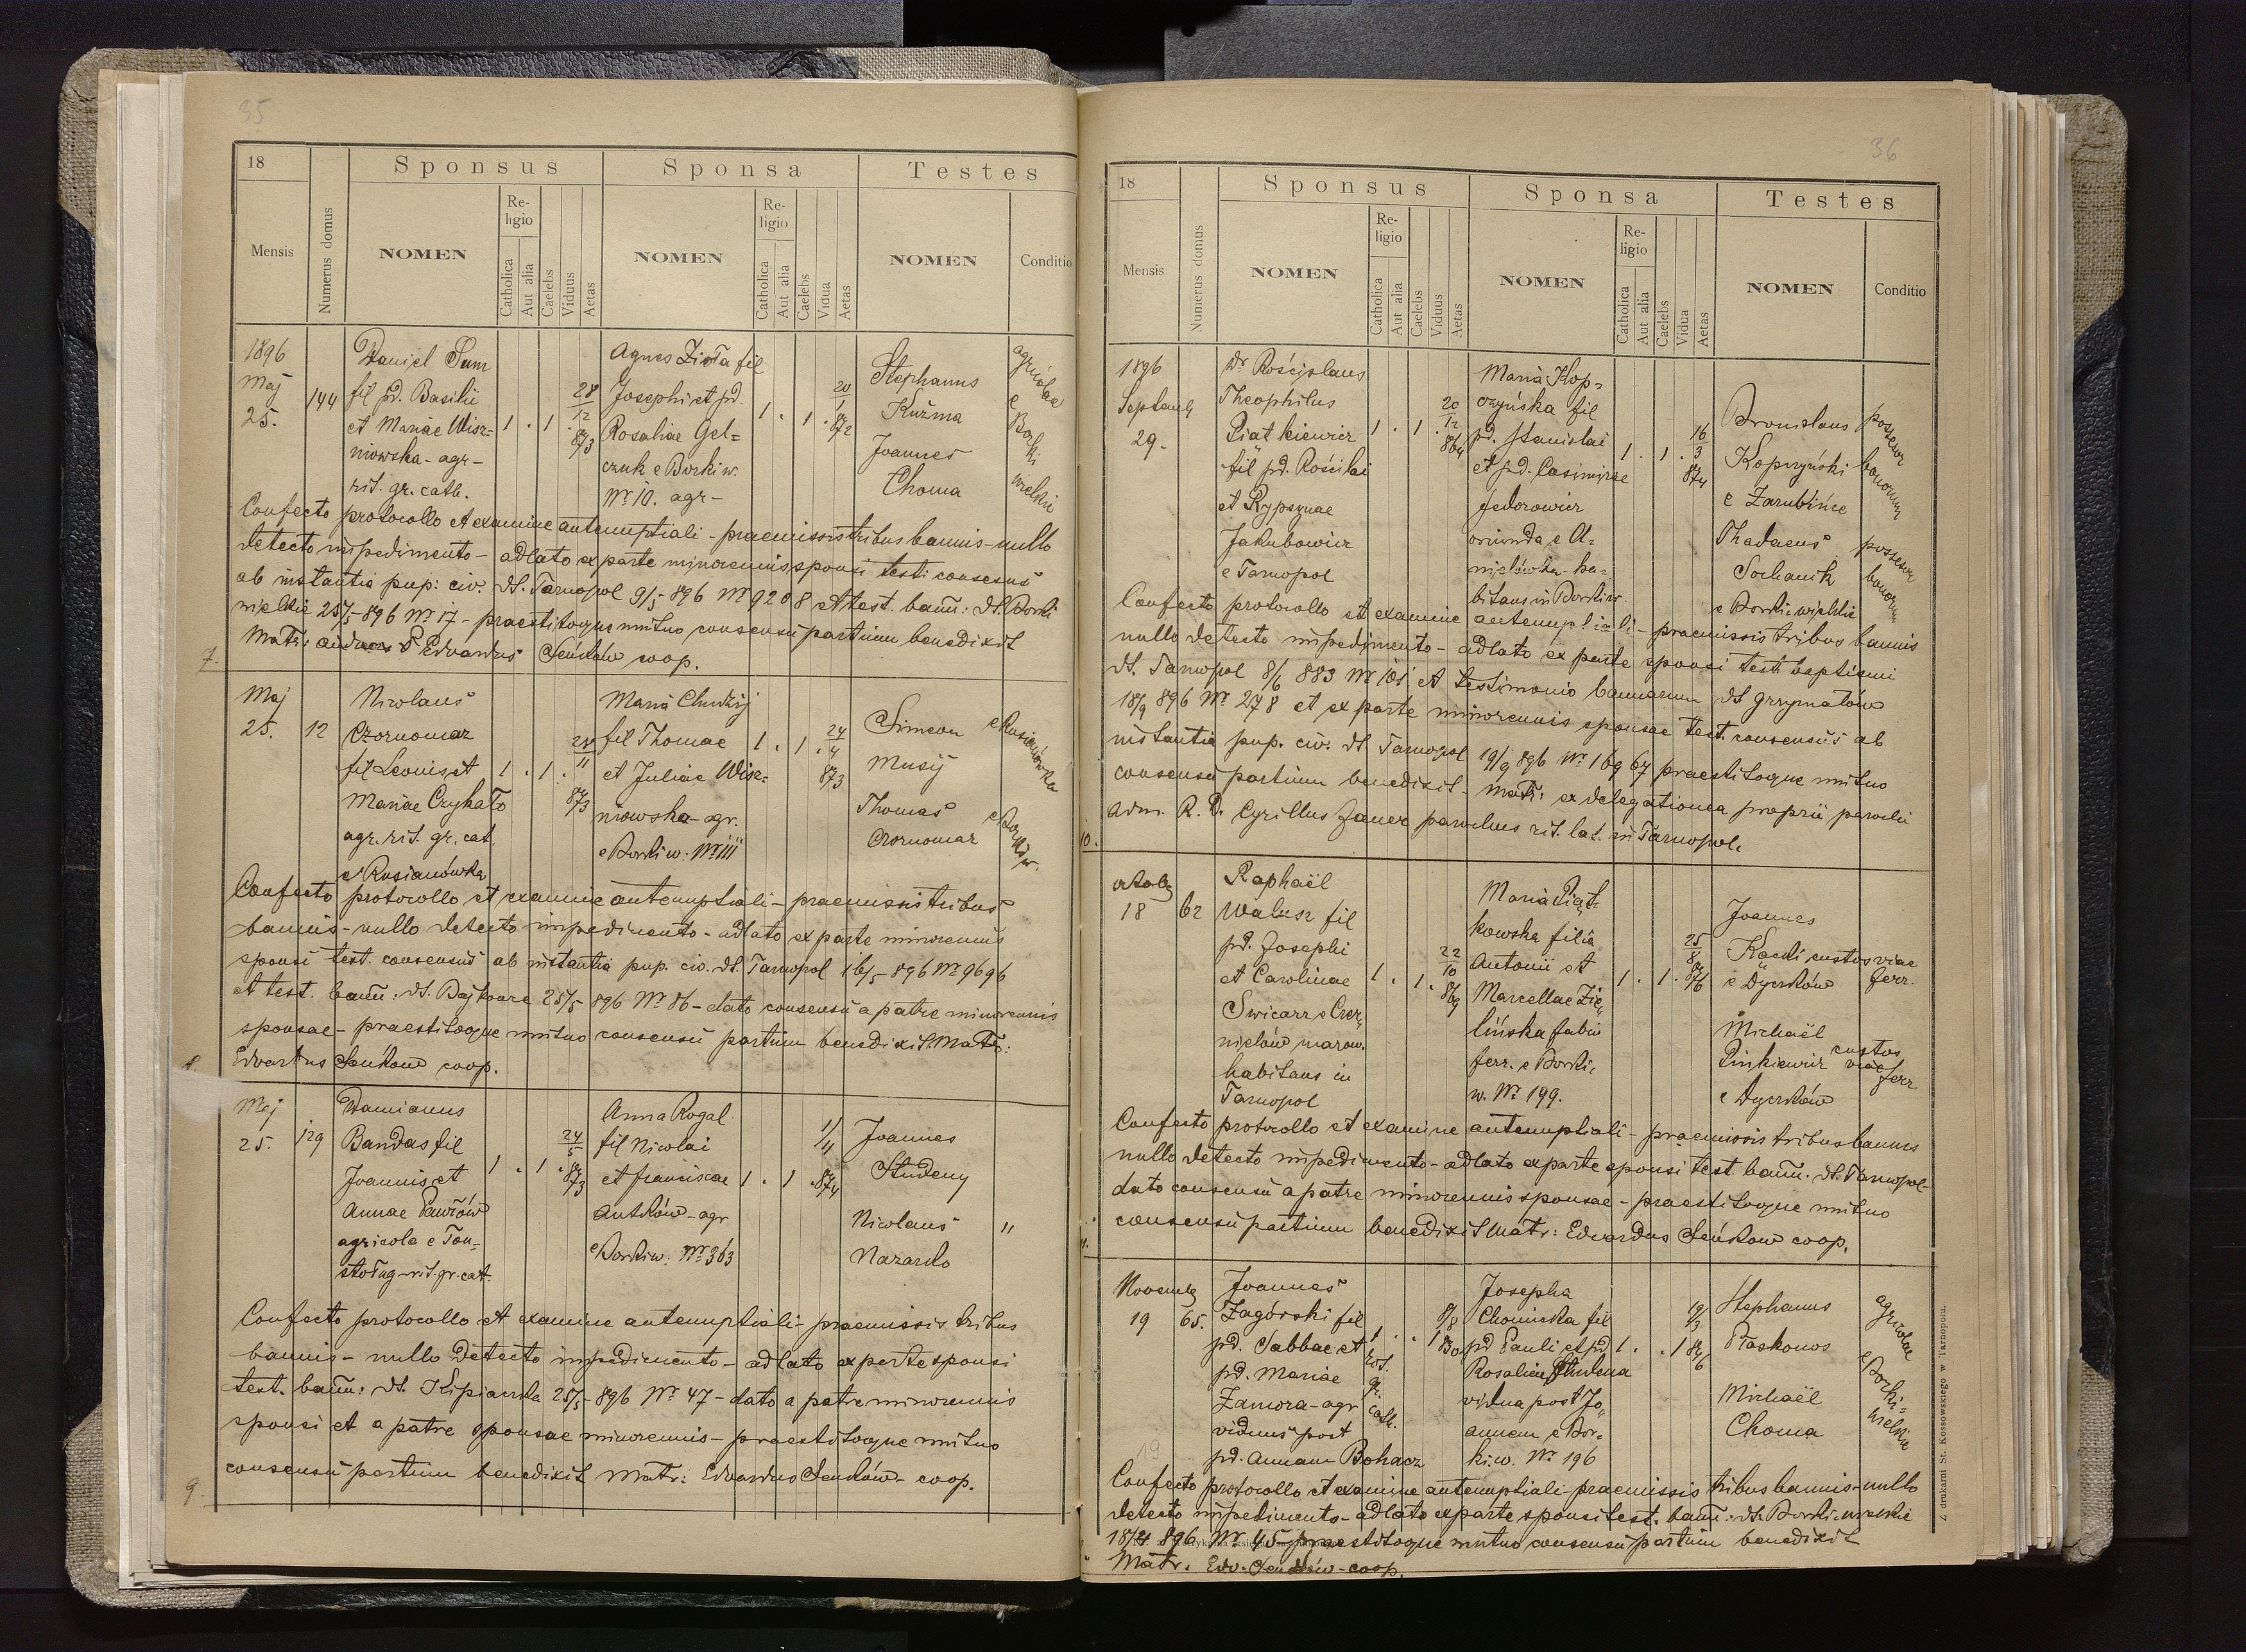 35
18
Sponsus
Sponsa
Testes
Mensis
Numerus domus
NOMEN
Re-
ligio
Catholica
Aut alia
Caelebs
Viduus
Aetas
NOMEN
Re-
ligio
Catholica
Aut alia
Caelebs
Vidua
Aetas
NOMEN
Conditio
1896
Maj
25.
144
Daniel Sum
fil pd. Basilii
et Mariae Wisz-
niowska - agr-
rit. gr. cath.
1 . 1 .
28
12
873
Agnes
fil
Josephi et pd.
Rosaliae Gel=
czuk e Borki w.
Nr 10. agr-
1 . 1 .
20
1
872
Stephanus
Kuźma
Joannes
Choma
agricolae
e
Borki
wielkie
Confecto protocollo et examine antenuptiali - praemissis tribus bannis - nullo
detecto impedimento - adlato ex parte minorennis sponsi testi consensus
ab instantia pup: civ. dt. Tarnopol 9/5 896 Nr 9208 et test. bann: dt. Borki
wielkie 25/5 896 Nr 17 - praestitoque mutuo consensu partium benedixit
Matr:
Edvardus Seńków coop.
7.
Maj
25.
12
Nicolaus
Czornomaz
fil Leonis et
Mariae Czykało
agr. rit. gr. cat.
e Rusianówka
1 . 1 .
11
873
Maria Chudzij
fil Thomae
et Juliae Wisz=
niowska - agr.
e Borki w: Nr 111
1 . 1 .
24
4
873
Simeon
Musij
Thomas
Czornomaz
e Rusianówka
e Borki w.
Confecto protocollo et examine antenuptiali - praemissis tribus
bannis - nullo detecto impedimento - adlato ex parte minorennis
sponsi test. consensus ab instantia pup. civ. dt. Tarnopol 16/5 896 Nr 9696
et test. bann: dt. Bajkowce 25/5 896 Nr 86 - dato consensu a patre minorennis
sponsae - praestitoque mutuo consensu partium benedixit Matr:
Edvardus Seńków coop.
Maj
25.
129
Damianus
Bandas fil
Joannis et
Annae Pawłów
agricola e Tou=
stoług - rit. gr. cat.
1 . 1 .
24
5
873
Anna Rogal
fil Nicolai
et Franciscae
Antków - agr
e Borki w: Nr 363
1 . 1 .
11
11
874
Joannes
Studeny
Nicolaus
Nazarko
"
Confecto protocollo et examine antenuptiali - praemissis tribus
bannis - nullo detecto impedimento - adlato ex parte sponsi
test. bann: dt.
25/5 896 Nr 47 - dato a patre minorennis
sponsi et a patre sponsae minorennis - praestitoque mutuo
consensu partium benedixit Matr: Edvardus Seńków - coop.
9.
36
18
Sponsus
Sponsa
Testes
Mensis
Numerus domus
NOMEN
Re-
ligio
Catholica
Aut alia
Caelebs
Viduus
Aetas
NOMEN
Re-
ligio
Catholica
Aut alia
Caelebs
Vidua
Aetas
NOMEN
Conditio
1896
Septemb
29.
Dr Rościslaus
Theophilus
Piątkiewicz
fil pd. Rościslai
et Rypsynae
Jakubowicz
e Tarnopol
1 . 1 .
20
12
864
Maria Kop=
czyńska fil
pd. Stanislai
et pd. Casimirae
Fedorowicz
oriunda e A=
nielówka - ha=
bitans in Borki w.
1 . 1 .
16
3
874
Bronislaus
Kopczyński
e Zarubińce
Thadaeus
Sochanik
e Borki wielkie
possesor
bonorum
possesor
bonorum
Confecto protocollo et examine antenuptiali - praemissis tribus bannis
nullo detecto impedimento - adlato ex parte sponsi test. baptismi
dt. Tarnopol 8/6 883 Nr 101 et testimonio bannorum dt Grzymałów
18/9 896 Nr 278 et ex parte minorennis sponsae test. consensus ab
instantia pup. civ. dt. Tarnopol 19/9 896 Nr 16967 praestitoque mutuo
consensu partium benedixit - Matr: ex delegationea proprii parochi
Adm. R. D. Cyrillus Janer parochus rit. lat. in Tarnopol.
10.
Octob
18
62
Raphaël
Walusz fil
pd. Josephi
et Carolinae
Swicarz e Czer=
nielów mazow.
habitans in
Tarnopol
1 . 1 .
22
10
869
Maria Piąt=
kowska filia
Antonii et
Marcellae Zie=
lińska
ferr. e Borki.
w. Nr 199.
1 . 1 .
25
8
876
Joannes
e Dyczków
Michaël
Pinkiewicz
e Dyczków
custos viae
ferr.
custos
viae
ferr
Confecto protocollo et examine antenuptiali - praemissis tribus bannis
nullo detecto impedimento - adlato ex parte sponsi test. bann. dt. Tarnopol -
dato consensu a patre minorennis sponsae - praestitoque mutuo
consensu partium benedixit Matr: Edvardus Seńków coop.
11.
Novemb
19
65.
Joannes
Zagórski fil
pd. Sabbae et
pd. Mariae
Zamora - agr
viduus post
pd. Annam Bohacz
1 . . 1
rit.
gr.
cath.
8/8
830
Josepha
Chomicka fil
pd Pauli et pd
Rosaliae
vidua post Jo=
annem e Bor=
ki w. Nr 196
1 . . 1
19
3
846
Stephanus
Paskonos
Michaël
Choma
agricolae
e
Borki=
wielkie
19
Confecto protocollo et examine antenuptiali - praemissis tribus bannis - nullo
detecto impedimento - adlato ex parte sponsi test. bann: dt. Borki - wielkie
896 Nr 45 praestitoque mutuo consensu partium benedixit
Matr. Edv. Seńków - coop.
Z drukarni St. Kossowskiego w Tarnopolu.